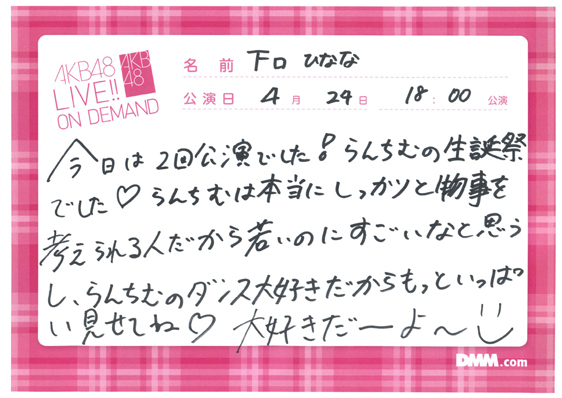 AKB48
LIVE!!
ON DEMAND
AKB
48
名前 下口 ひなな
公演日 4月 24日 18:00 公演
今日は2回公演でした! らんちむの生誕祭
でした♡ らんちむは本当にしっかりと物事を
考えられる人だから若いのにすごいなと思う
し、らんちむのダンス大好きだからもっといっぱ
い見せてね♡ 大好きだーよ〜
DMM.com